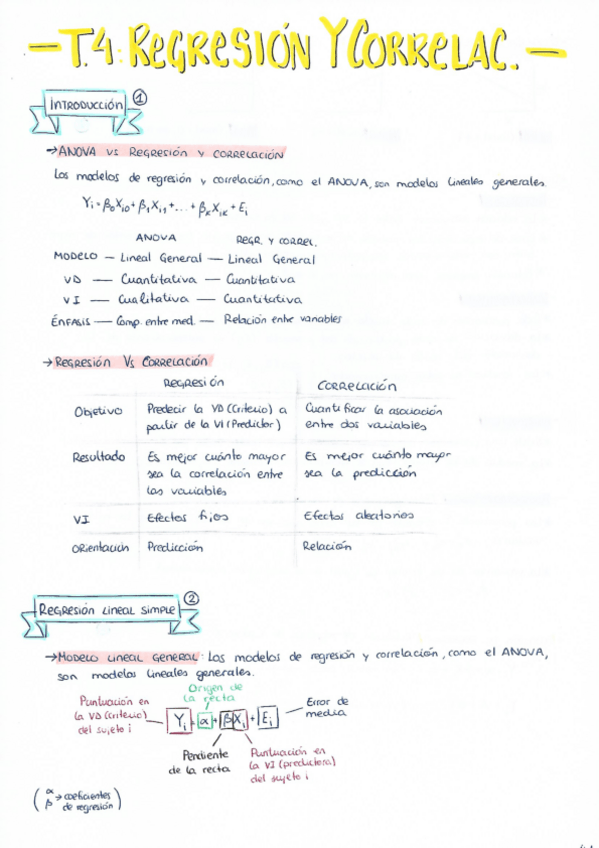 -T.4: REGRESIÓN Y CORRELAC.-
INTRODUCCIÓN ①
→ ANOVA vs REGRESIÓN Y CORRELACIÓN
Los modelos de regresión y correlación, como el ANOVA, son modelos lineales generales.
Yi = β0Xi0 + β1Xi1 + ... + βkXik + Ei
ANOVA REGR. Y CORREL.
MODELO — Lineal General — Lineal General
VD — Cuantitativa — Cuantitativa
VI — Cualitativa — Cuantitativa
ÉNFASIS — Comp. entre med. — Relación entre variables
→ REGRESIÓN VS CORRELACIÓN
REGRESIÓN CORRELACIÓN
Objetivo Predecir la VD (Criterio) a Cuantificar la asociación
partir de la VI (Predictor) entre dos variables
Resultado Es mejor cuánto mayor Es mejor cuánto mayor
sea la correlación entre sea la predicción
las variables
VI Efectos fijos Efectos aleatorios
Orientación Predicción Relación
REGRESIÓN LINEAL SIMPLE ②
→ MODELO LINEAL GENERAL: Los modelos de regresión y correlación, como el ANOVA,
son modelos lineales generales.
Origen de
la recta
Puntuación en
la VD (criterio)
del sujeto i
Yi = α + βXi + Ei
Error de
medida
Pendiente
de la recta
Puntuación en
la VI (predictora)
del sujeto i
(α β → coeficientes
de regresión)